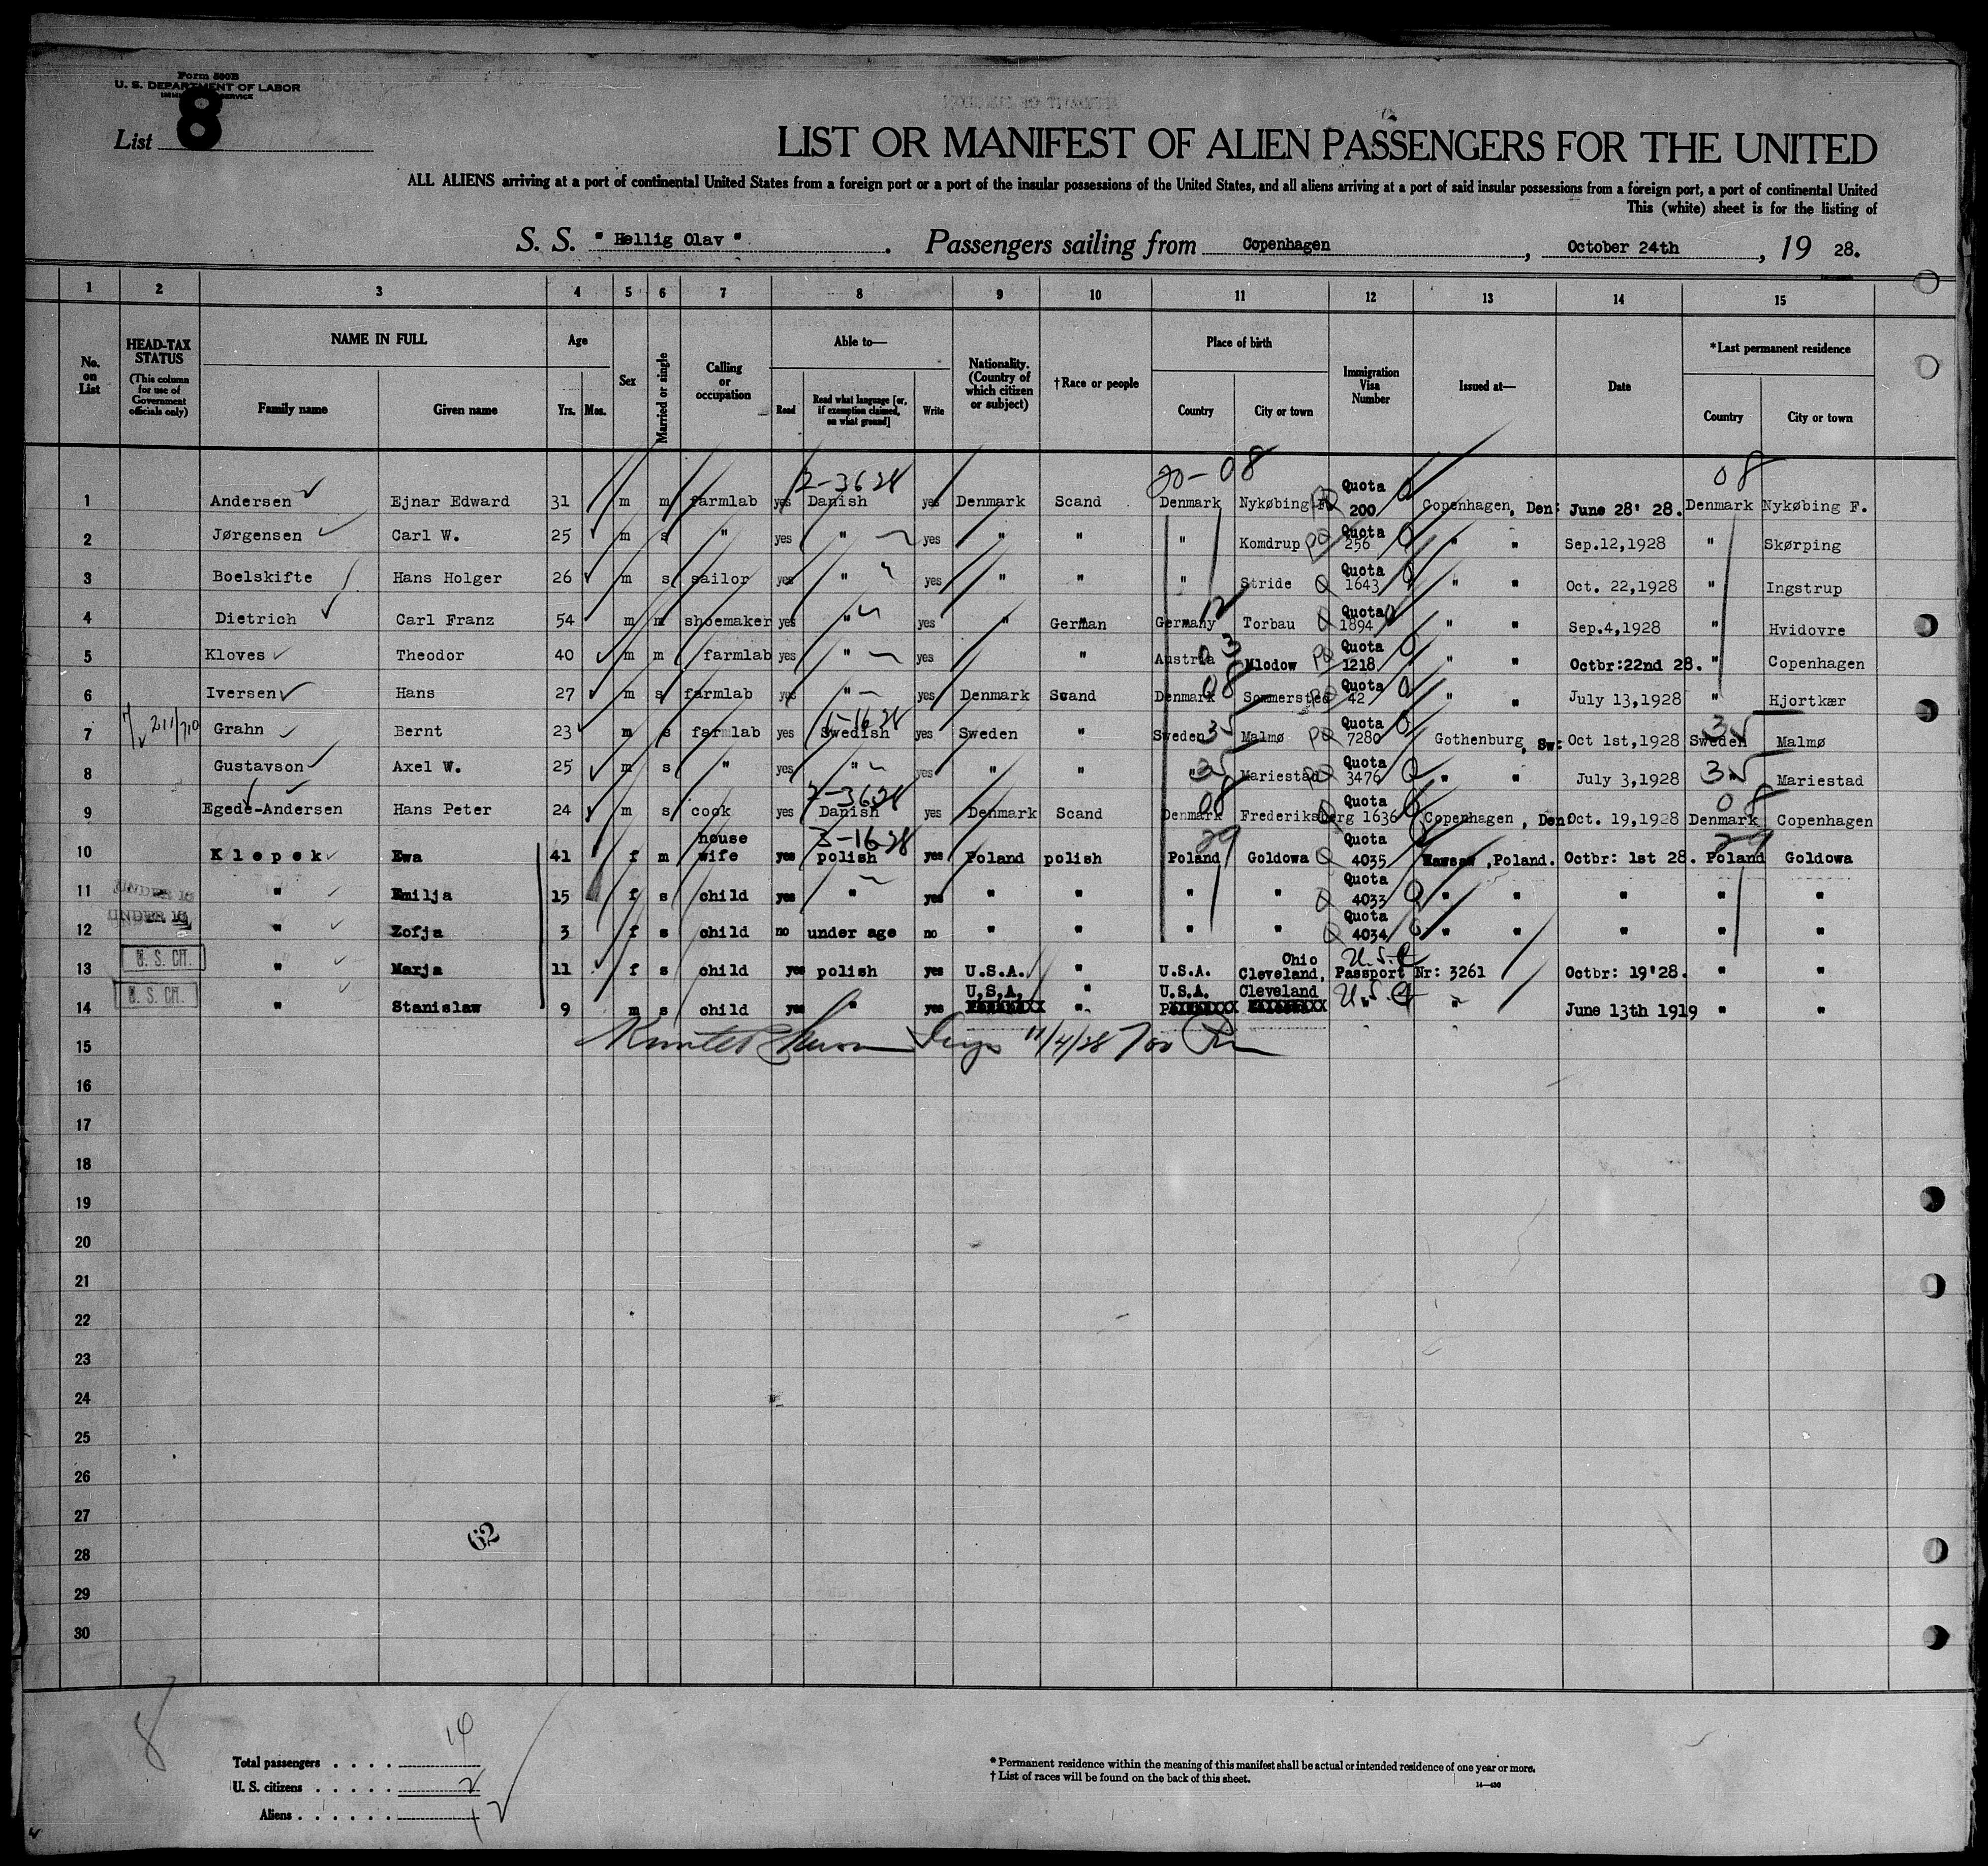 Form 500B
U. S. DEPARTMENT OF LABOR
List 8
LIST OR MANIFEST OF ALIEN PASSENGERS FOR THE UNITED
ALL ALIENS arriving at a port of continental United States from a foreign port or a port of the insular possessions of the United States, and all aliens arriving at a port of said insular possessions from a foreign port, a port of continental United
This (white) sheet is for the listing of
S. S. " Hellig Olav " . Passengers sailing from Copenhagen , October 24th , 19 28.
1 2 3 4 5 6 7 8 9 10 11 12 13 14 15
No. on List HEAD-TAX STATUS (This column for use of Government officials only) NAME IN FULL Family name Given name Age Yrs. Mos. Sex Married or single Calling or occupation Able to— Read Read what language [or, if exemption claimed, on what ground] Write Nationality. (Country of which citizen or subject) †Race or people Place of birth Country City or town Immigration Visa Number Issued at— Date *Last permanent residence Country City or town
2-3628 20-08 08
1 Andersen Ejnar Edward 31 m m farmlab yes Danish yes Denmark Scand Denmark Nykøbing F. Quota 200 Copenhagen, Den: June 28' 28. Denmark Nykøbing F.
2 Jørgensen Carl W. 25 m s " yes " yes " " " Komdrup PQ Quota 256 " " Sep.12,1928 " Skørping
3 Boelskifte Hans Holger 26 m s sailor yes " yes " " " Stride Q Quota 1643 " " Oct. 22,1928 " Ingstrup
4 Dietrich Carl Franz 54 m m shoemaker yes " yes " German Germany 12 Torbau Q Quota 1894 " " Sep.4,1928 " Hvidovre
5 Kloves Theodor 40 m m farmlab yes " yes " Austria 03 Mlodow PQ Quota 1218 " " Octbr:22nd 28. " Copenhagen
6 Iversen Hans 27 m s farmlab yes " yes Denmark Scand Denmark 08 Sommersted PQ Quota 42 " " July 13,1928 " Hjortkær
7 211/710 Grahn Bernt 23 m s farmlab yes 1-1628 Swedish yes Sweden " Sweden 35 Malmø PQ Quota 7280 Gothenburg, Sw: Oct 1st,1928 Sweden 35 Malmø
8 Gustavson Axel W. 25 m s " yes " yes " " " 35 Mariestad PQ Quota 3476 " " July 3,1928 " 35 Mariestad
9 Egede-Andersen Hans Peter 24 m s cook yes 2-3628 Danish yes Denmark Scand Denmark 08 Frederiksberg Quota 1636 Copenhagen , Den: Oct. 19,1928 Denmark 08 Copenhagen
10 Klepek Ewa 41 f m house wife yes 3-1628 polish yes Poland polish Poland 29 Goldowa Q Quota 4035 Warsaw ,Poland. Octbr: 1st 28. Poland 29 Goldowa
11 UNDER 16 " Emilja 15 f s child yes " yes " " " " Q Quota 4033 " " " " "
12 UNDER 16 " Zofja 3 f s child no under age no " " " " Q Quota 4034 " " " " "
13 U. S. CIT. " Marja 11 f s child yes polish yes U.S.A. " U.S.A. Ohio Cleveland, U.S.C Passport Nr: 3261 Octbr: 19'28. " "
14 U. S. CIT. " Stanislaw 9 m s child yes " yes U.S.A. " U.S.A. Cleveland U.S.C " " June 13th 1919 " "
15 11/4/28
16
17
18
19
20
21
22
23
24
25
26
27
28
29
30
62
8
Total passengers . . . . 14
U. S. citizens . . . . . 2
Aliens . . . . . . 12
* Permanent residence within the meaning of this manifest shall be actual or intended residence of one year or more.
† List of races will be found on the back of this sheet.
14—430